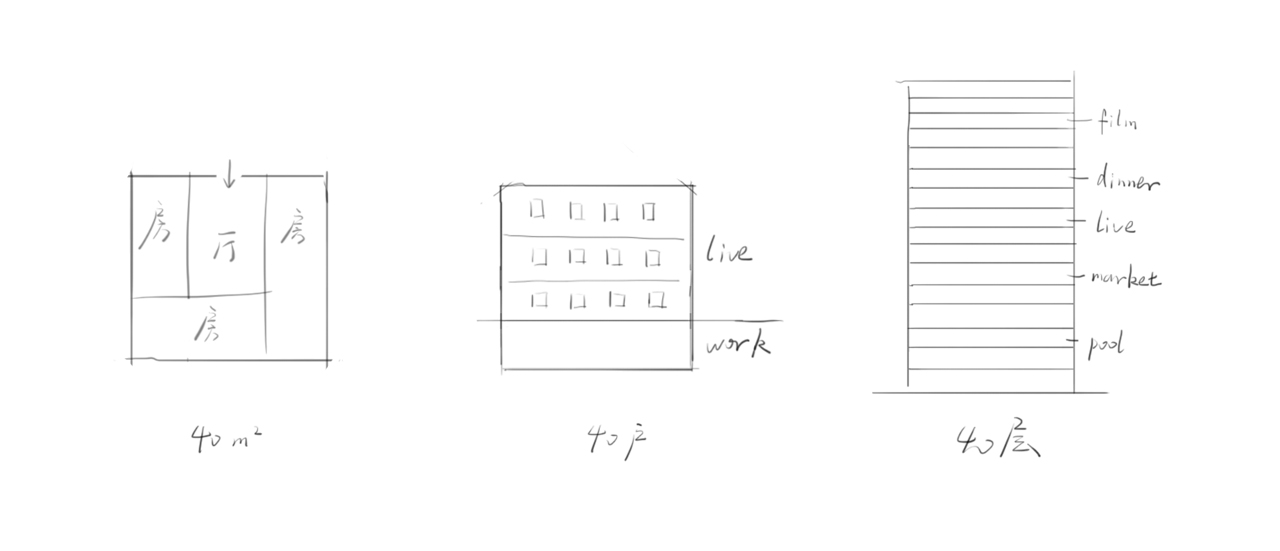 房
厅
房
房
40 m²
live
work
40户
film
dinner
live
market
pool
40层